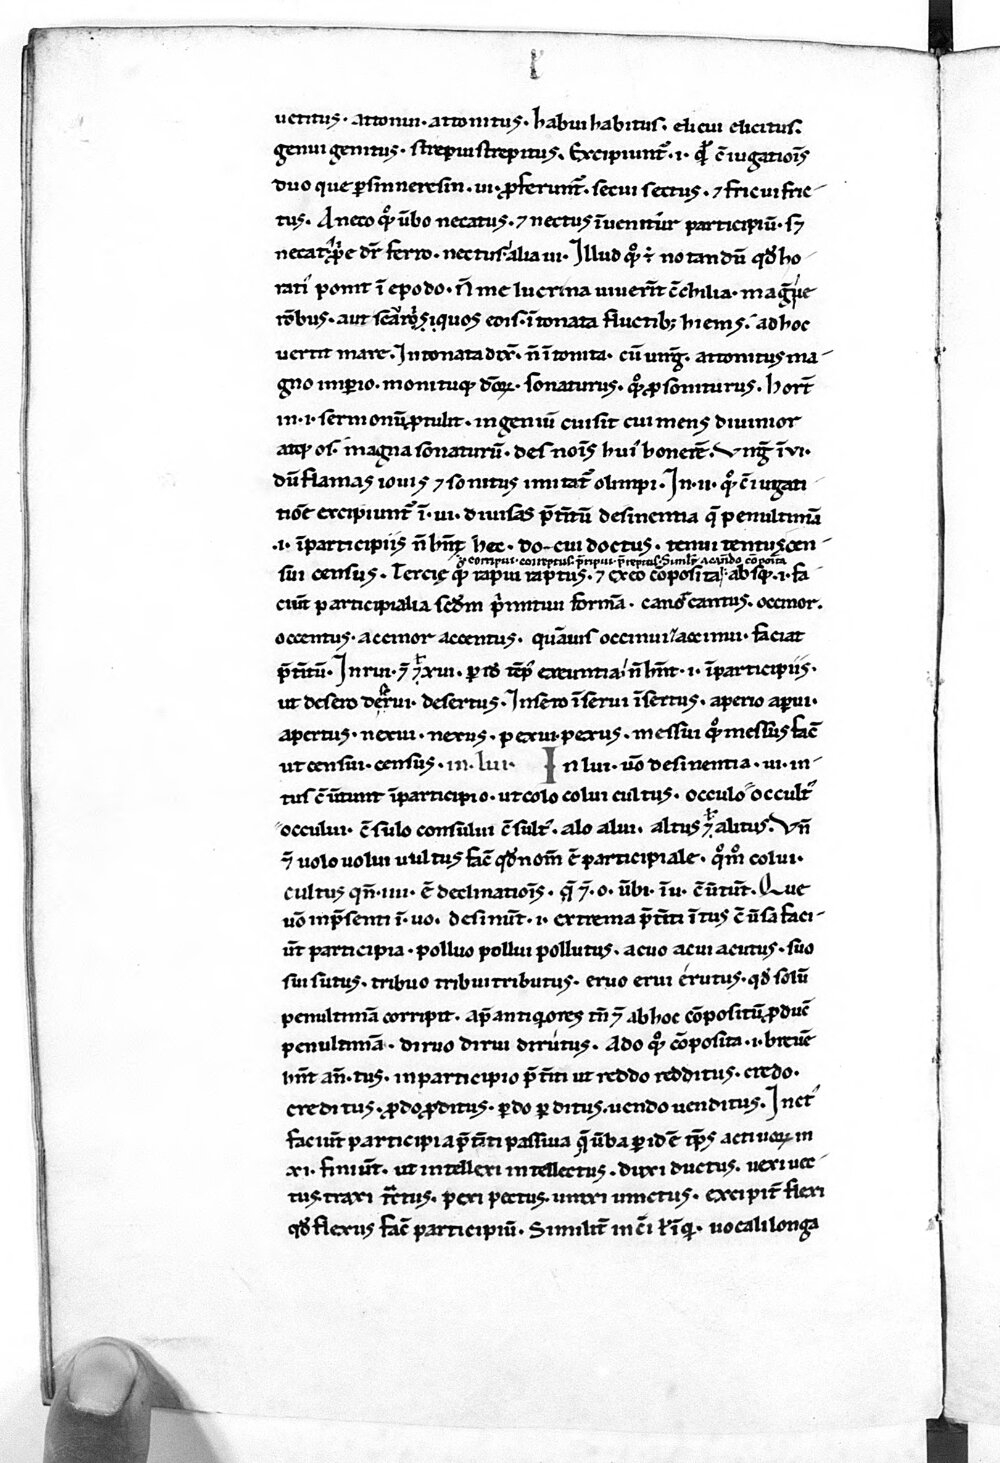 uetitus · attonui · attonitus · habui habitus · elicui elicitus.
genui genitus · strepui strepitus. Excipiunt̄ · i · c̄iugatiōis
duo que ꝑ sin neresin · ui · ꝓferunt̄ · secui sectus · ⁊ fricui fric-
tus. A neco ūbo necatus · ⁊ nectus īuenitur participiū · sꝫ
necat dr̄ ferro · nectus alia ui · Illud notandū qđ ho-
rati ponit ī epodo · n̄ me lucrina iuuerīt c̄chilia · mag
rōbus · aut scari siquos eois · ītonata fluctibꝫ hiems · ad hoc
uertit mare. Intonata dix̄ · n̄ ītonita · cū uirḡ · attonitus ma-
gno imꝑio · monituqꝫ · sonaturus · ꝓ soniturus · hort̄
in · i · sermonū ꝓtulit · ingeniū cui sit cui mens diuinior
atqꝫ os · magna sonaturū · des noīs hui honerē. Virḡ ī vi ·
dū flamas iouis ⁊ sonitus imitat̄ olimpi · In · ii · c̄iugati-
tiōe excipiunt̄ ī · ui · diuisas p̄titū desinentia q̄ penultimā
· i · īparticipiis n̄ hn̄t hec · do-cui doctus · tenui tentus cen-
corripui · correptus · p̄ripui · p̄reptus · Simlr̄ a cando cōposita
sui census · Tercie rapui raptus · ⁊ ex eo cōposita · absqꝫ · i · fa-
ciūt participialia scđm p̄mitiui formā · cano cantus · occinor.
occentus · accinor accentus · quāuis occinui accinui · faciat
p̄titū · In rui · ⁊ xui · exeuntia n̄ hn̄t · i · īparticipiis ·
ut desero deserui · desertus · Insero īserui īsertus · aperio aꝑui ·
apertus · nexui · nexus · pexui · pexus · messui messus facē
ut censui · census · in · lui · In lui · uō desinentia · ui · in-
tus c̄uertunt īparticipio · ut colo colui cultus · occulo occult
occului · c̄sulo consului c̄sult · alo alui · altus ⁊ alitus · Vn̄
⁊ uolo uolui uultus facē qđ nom̄ ē participiale · colui ·
cultus qn̄ · iiii · ē declinatiōis · ⁊ · o · ūbi · ī u · c̄ūtūt · Que
uō in p̄senti ī · uo · desinūt · i · extrema p̄titi ī tus c̄uersa faci-
ūt participia · polluo pollui pollutus · acuo acui acutus · suo
sui sutus · tribuo tribui tributus · eruo erui érutus · qđ solū
penultimā corripit · ap̄ antiquiores tn̄ ⁊ ab hoc cōpositū ꝓducē
penultimā · diruo dirui dirútus · A do cōposita · i · breuē
hn̄t an̄ · tus · in participio p̄titi ut reddo redditus · credo ·
creditus · ꝓdo ꝓditus · ꝑdo ꝑditus · uendo uenditus · In cet
faciūt participia p̄titi passiua q̄ ūba ꝑ idē tp̄s actiuoꝝ in
xi · finiūt · ut intellexi intellectus · duxi ductus · uexi uec-
tus traxi tractus · pexi pectus · uinxi uinctus · excipit̄ flexi
qđ flexus facē participiū · Similit̄ in c̄i uocali longa